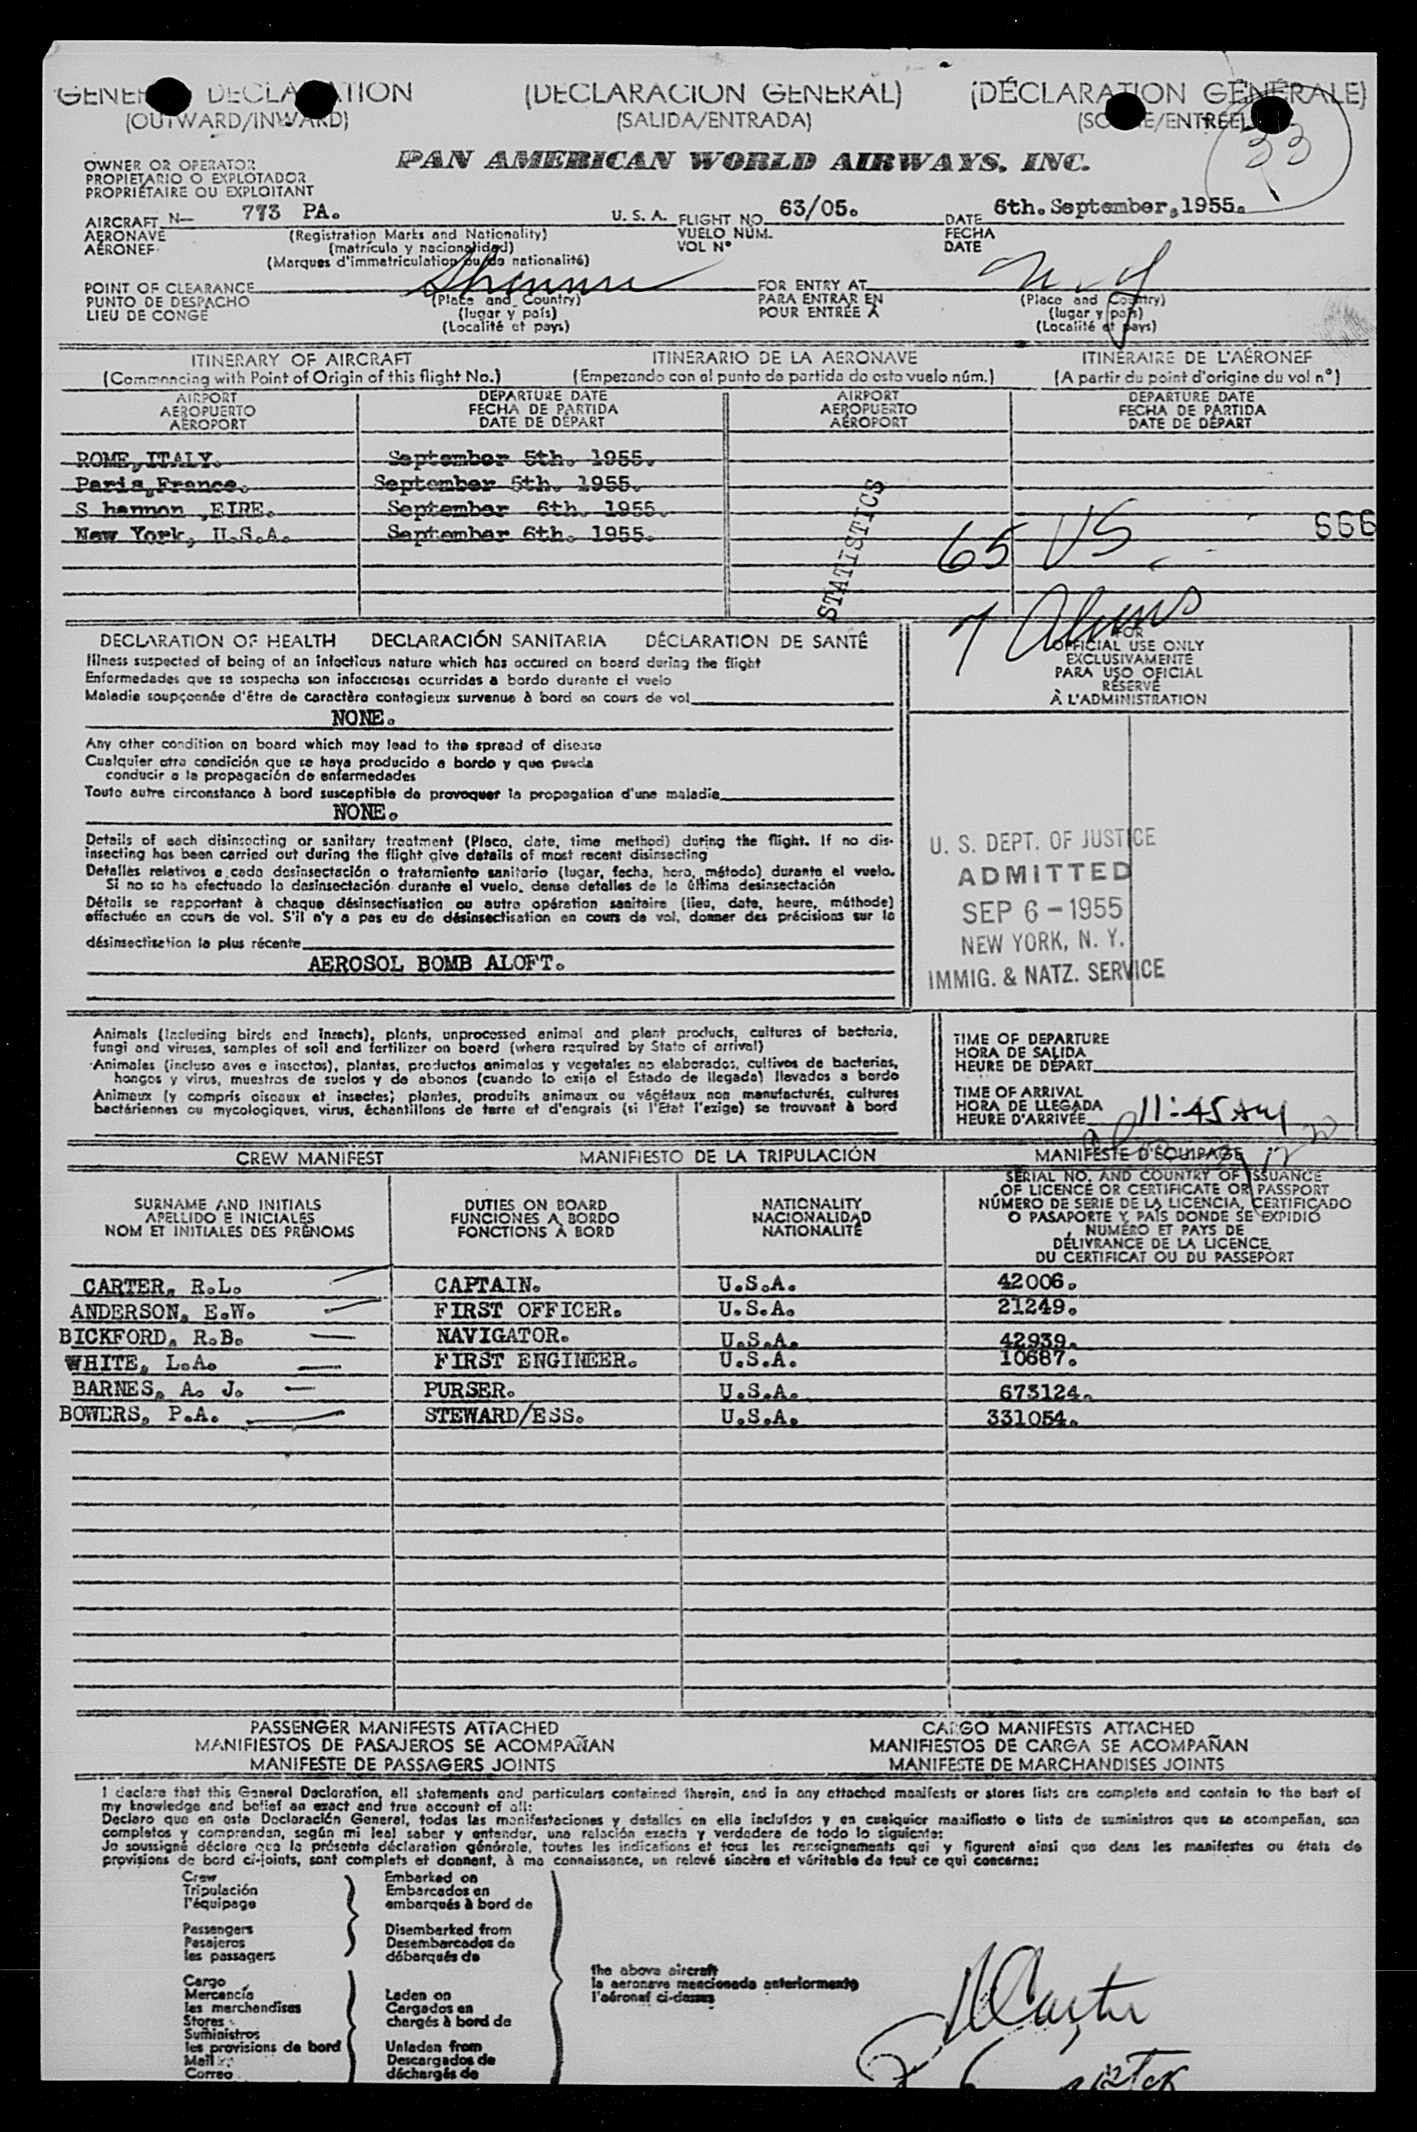 GENERAL DECLARATION (DECLARACION GENERAL) (DÉCLARATION GÉNÉRALE)
(OUTWARD/INWARD) (SALIDA/ENTRADA) (SORTIE/ENTRÉE)
33
OWNER OR OPERATOR
PROPIETARIO O EXPLOTADOR
PROPRIÉTAIRE OU EXPLOITANT
PAN AMERICAN WORLD AIRWAYS, INC.
AIRCRAFT N— 773 PA. U. S. A. FLIGHT NO. 63/05. DATE 6th. September,1955.
AERONAVE (Registration Marks and Nationality) VUELO NÚM. FECHA
AÉRONEF (matrícula y nacionalidad) VOL Nº DATE
(Marques d'immatriculation ou de nationalité)
POINT OF CLEARANCE Shannon FOR ENTRY AT N.Y
PUNTO DE DESPACHO (Place and Country) PARA ENTRAR EN (Place and Country)
LIEU DE CONGÉ (lugar y país) POUR ENTRÉE À (lugar y país)
(Localité et pays) (Localité et pays)
ITINERARY OF AIRCRAFT ITINERARIO DE LA AERONAVE ITINÉRAIRE DE L'AÉRONEF
(Commencing with Point of Origin of this flight No.) (Empezando con el punto de partida de este vuelo núm.) (A partir du point d'origine du vol nº)
AIRPORT DEPARTURE DATE AIRPORT DEPARTURE DATE
AEROPUERTO FECHA DE PARTIDA AEROPUERTO FECHA DE PARTIDA
AÉROPORT DATE DE DÉPART AÉROPORT DATE DE DÉPART
ROME,ITALY. September 5th. 1955.
Paris,France. September 5th. 1955.
S hannon ,EIRE. September 6th. 1955.
New York, U.S.A. September 6th. 1955.
STATISTICS
65 US
666
7 Aliens
DECLARATION OF HEALTH DECLARACIÓN SANITARIA DÉCLARATION DE SANTÉ
Illness suspected of being of an infectious nature which has occured on board during the flight
Enfermedades que se sospecha son infecciosas ocurridas a bordo durante el vuelo
Maladie soupçonnée d'être de caractère contagieux survenue à bord en cours de vol
NONE.
Any other condition on board which may lead to the spread of disease
Cualquier otra condición que se haya producido a bordo y que pueda
conducir a la propagación de enfermedades
Toute autre circonstance à bord susceptible de provoquer la propagation d'une maladie
NONE.
Details of each disinsecting or sanitary treatment (Place, date, time method) during the flight. If no dis-
insecting has been carried out during the flight give details of most recent disinsecting
Detalles relativos a cada desinsectación o tratamiento sanitario (lugar, fecha, hora, método) durante el vuelo.
Si no se ha efectuado la desinsectación durante el vuelo, dense detalles de la última desinsectación
Détails se rapportant à chaque désinsectisation ou autre opération sanitaire (lieu, date, heure, méthode)
effectuée en cours de vol. S'il n'y a pas eu de désinsectisation en cours de vol, donner des précisions sur la
désinsectisation la plus récente
AEROSOL BOMB ALOFT.
FOR
OFFICIAL USE ONLY
EXCLUSIVAMENTE
PARA USO OFICIAL
RÉSERVÉ
À L'ADMINISTRATION
U. S. DEPT. OF JUSTICE
ADMITTED
SEP 6 – 1955
NEW YORK, N. Y.
IMMIG. & NATZ. SERVICE
Animals (including birds and insects), plants, unprocessed animal and plant products, cultures of bacteria,
fungi and viruses, samples of soil and fertilizer on board (where required by State of arrival)
Animales (incluso aves e insectos), plantas, productos animales y vegetales no elaborados, cultivos de bacterias,
hongos y virus, muestras de suelos y de abonos (cuando lo exija el Estado de llegada) llevados a bordo
Animaux (y compris oiseaux et insectes) plantes, produits animaux ou végétaux non manufacturés, cultures
bactériennes ou mycologiques, virus, échantillons de terre et d'engrais (si l'Etat l'exige) se trouvant à bord
TIME OF DEPARTURE
HORA DE SALIDA
HEURE DE DÉPART
TIME OF ARRIVAL
HORA DE LLEGADA
HEURE D'ARRIVÉE 11:45 AM
CREW MANIFEST MANIFIESTO DE LA TRIPULACIÓN MANIFESTE D'ÉQUIPAGE
SURNAME AND INITIALS DUTIES ON BOARD NATIONALITY
APELLIDO E INICIALES FUNCIONES A BORDO NACIONALIDAD
NOM ET INITIALES DES PRÉNOMS FONCTIONS À BORD NATIONALITÉ
SERIAL NO. AND COUNTRY OF ISSUANCE
OF LICENCE OR CERTIFICATE OR PASSPORT
NÚMERO DE SERIE DE LA LICENCIA, CERTIFICADO
O PASAPORTE Y PAÍS DONDE SE EXPIDIÓ
NUMÉRO ET PAYS DE
DÉLIVRANCE DE LA LICENCE,
DU CERTIFICAT OU DU PASSEPORT
CARTER, R.L. CAPTAIN. U.S.A. 42006.
ANDERSON, E.W. FIRST OFFICER. U.S.A. 21249.
BICKFORD, R.B. NAVIGATOR. U.S.A. 42939.
WHITE, L.A. FIRST ENGINEER. U.S.A. 10687.
BARNES, A. J. PURSER. U.S.A. 673124.
BOWERS, P.A. STEWARD/ESS. U.S.A. 331054.
PASSENGER MANIFESTS ATTACHED CARGO MANIFESTS ATTACHED
MANIFIESTOS DE PASAJEROS SE ACOMPAÑAN MANIFIESTOS DE CARGA SE ACOMPAÑAN
MANIFESTE DE PASSAGERS JOINTS MANIFESTE DE MARCHANDISES JOINTS
I declare that this General Declaration, all statements and particulars contained therein, and in any attached manifests or stores lists are complete and contain to the best of
my knowledge and belief an exact and true account of all:
Declaro que en esta Declaración General, todas las manifestaciones y detalles en ella incluídos y en cualquier manifiesto o lista de suministros que se acompañan, son
completos y comprenden, según mi leal saber y entender, una relación exacta y verdadera de todo lo siguiente:
Je soussigné déclare que la présente déclaration générale, toutes les indications et tous les renseignements qui y figurent ainsi que dans les manifestes ou états de
provisions de bord ci-joints, sont complets et donnent, à ma connaissance, un relevé sincère et véritable de tout ce qui concerne:
Crew Embarked on
Tripulación Embarcados en
l'équipage embarqués à bord de
Passengers Disembarked from
Pasajeros Desembarcados de
les passagers débarqués de
the above aircraft
la aeronave mencionada anteriormente
l'aéronef ci-dessus
Cargo
Mercancía Laden on
les marchandises Cargados en
Stores chargés à bord de
Suministros
les provisions de bord Unladen from
Mail Descargados de
Correo déchargés de
RLCarter